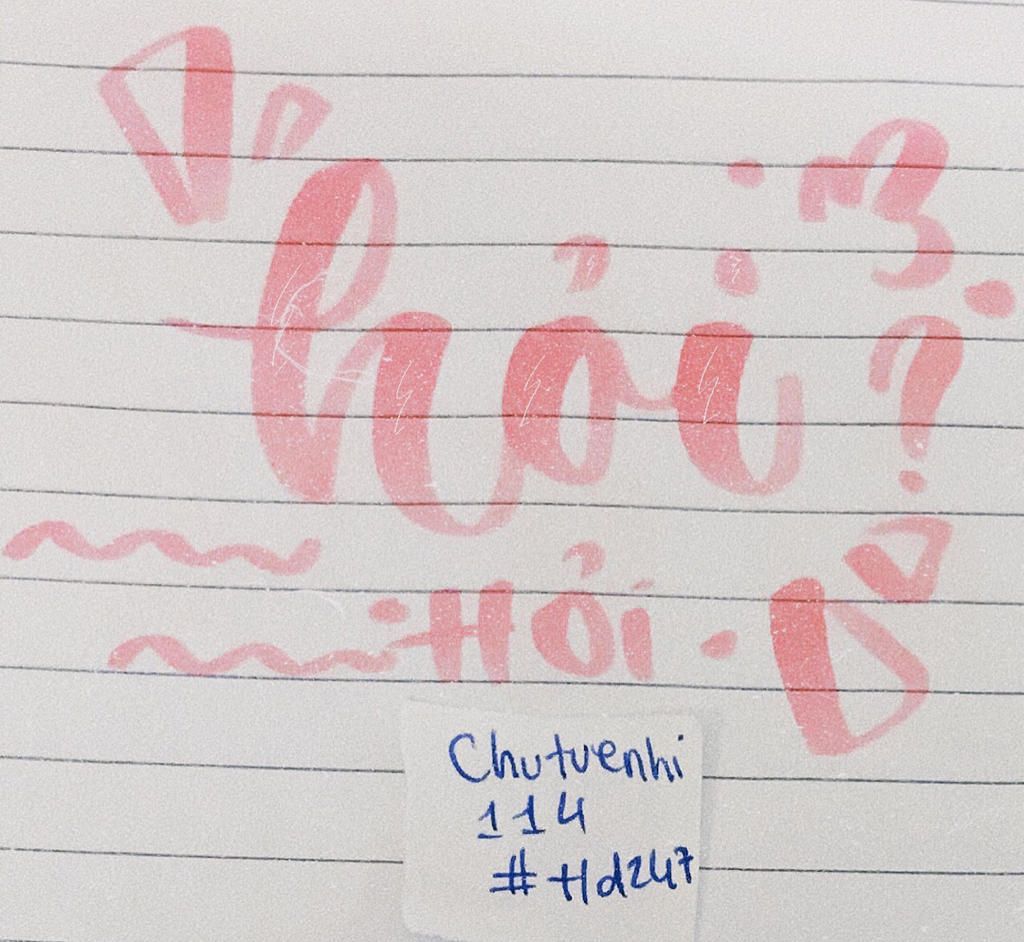 hỏi ?
HỎI
Chutuenhi
114
#Hd247